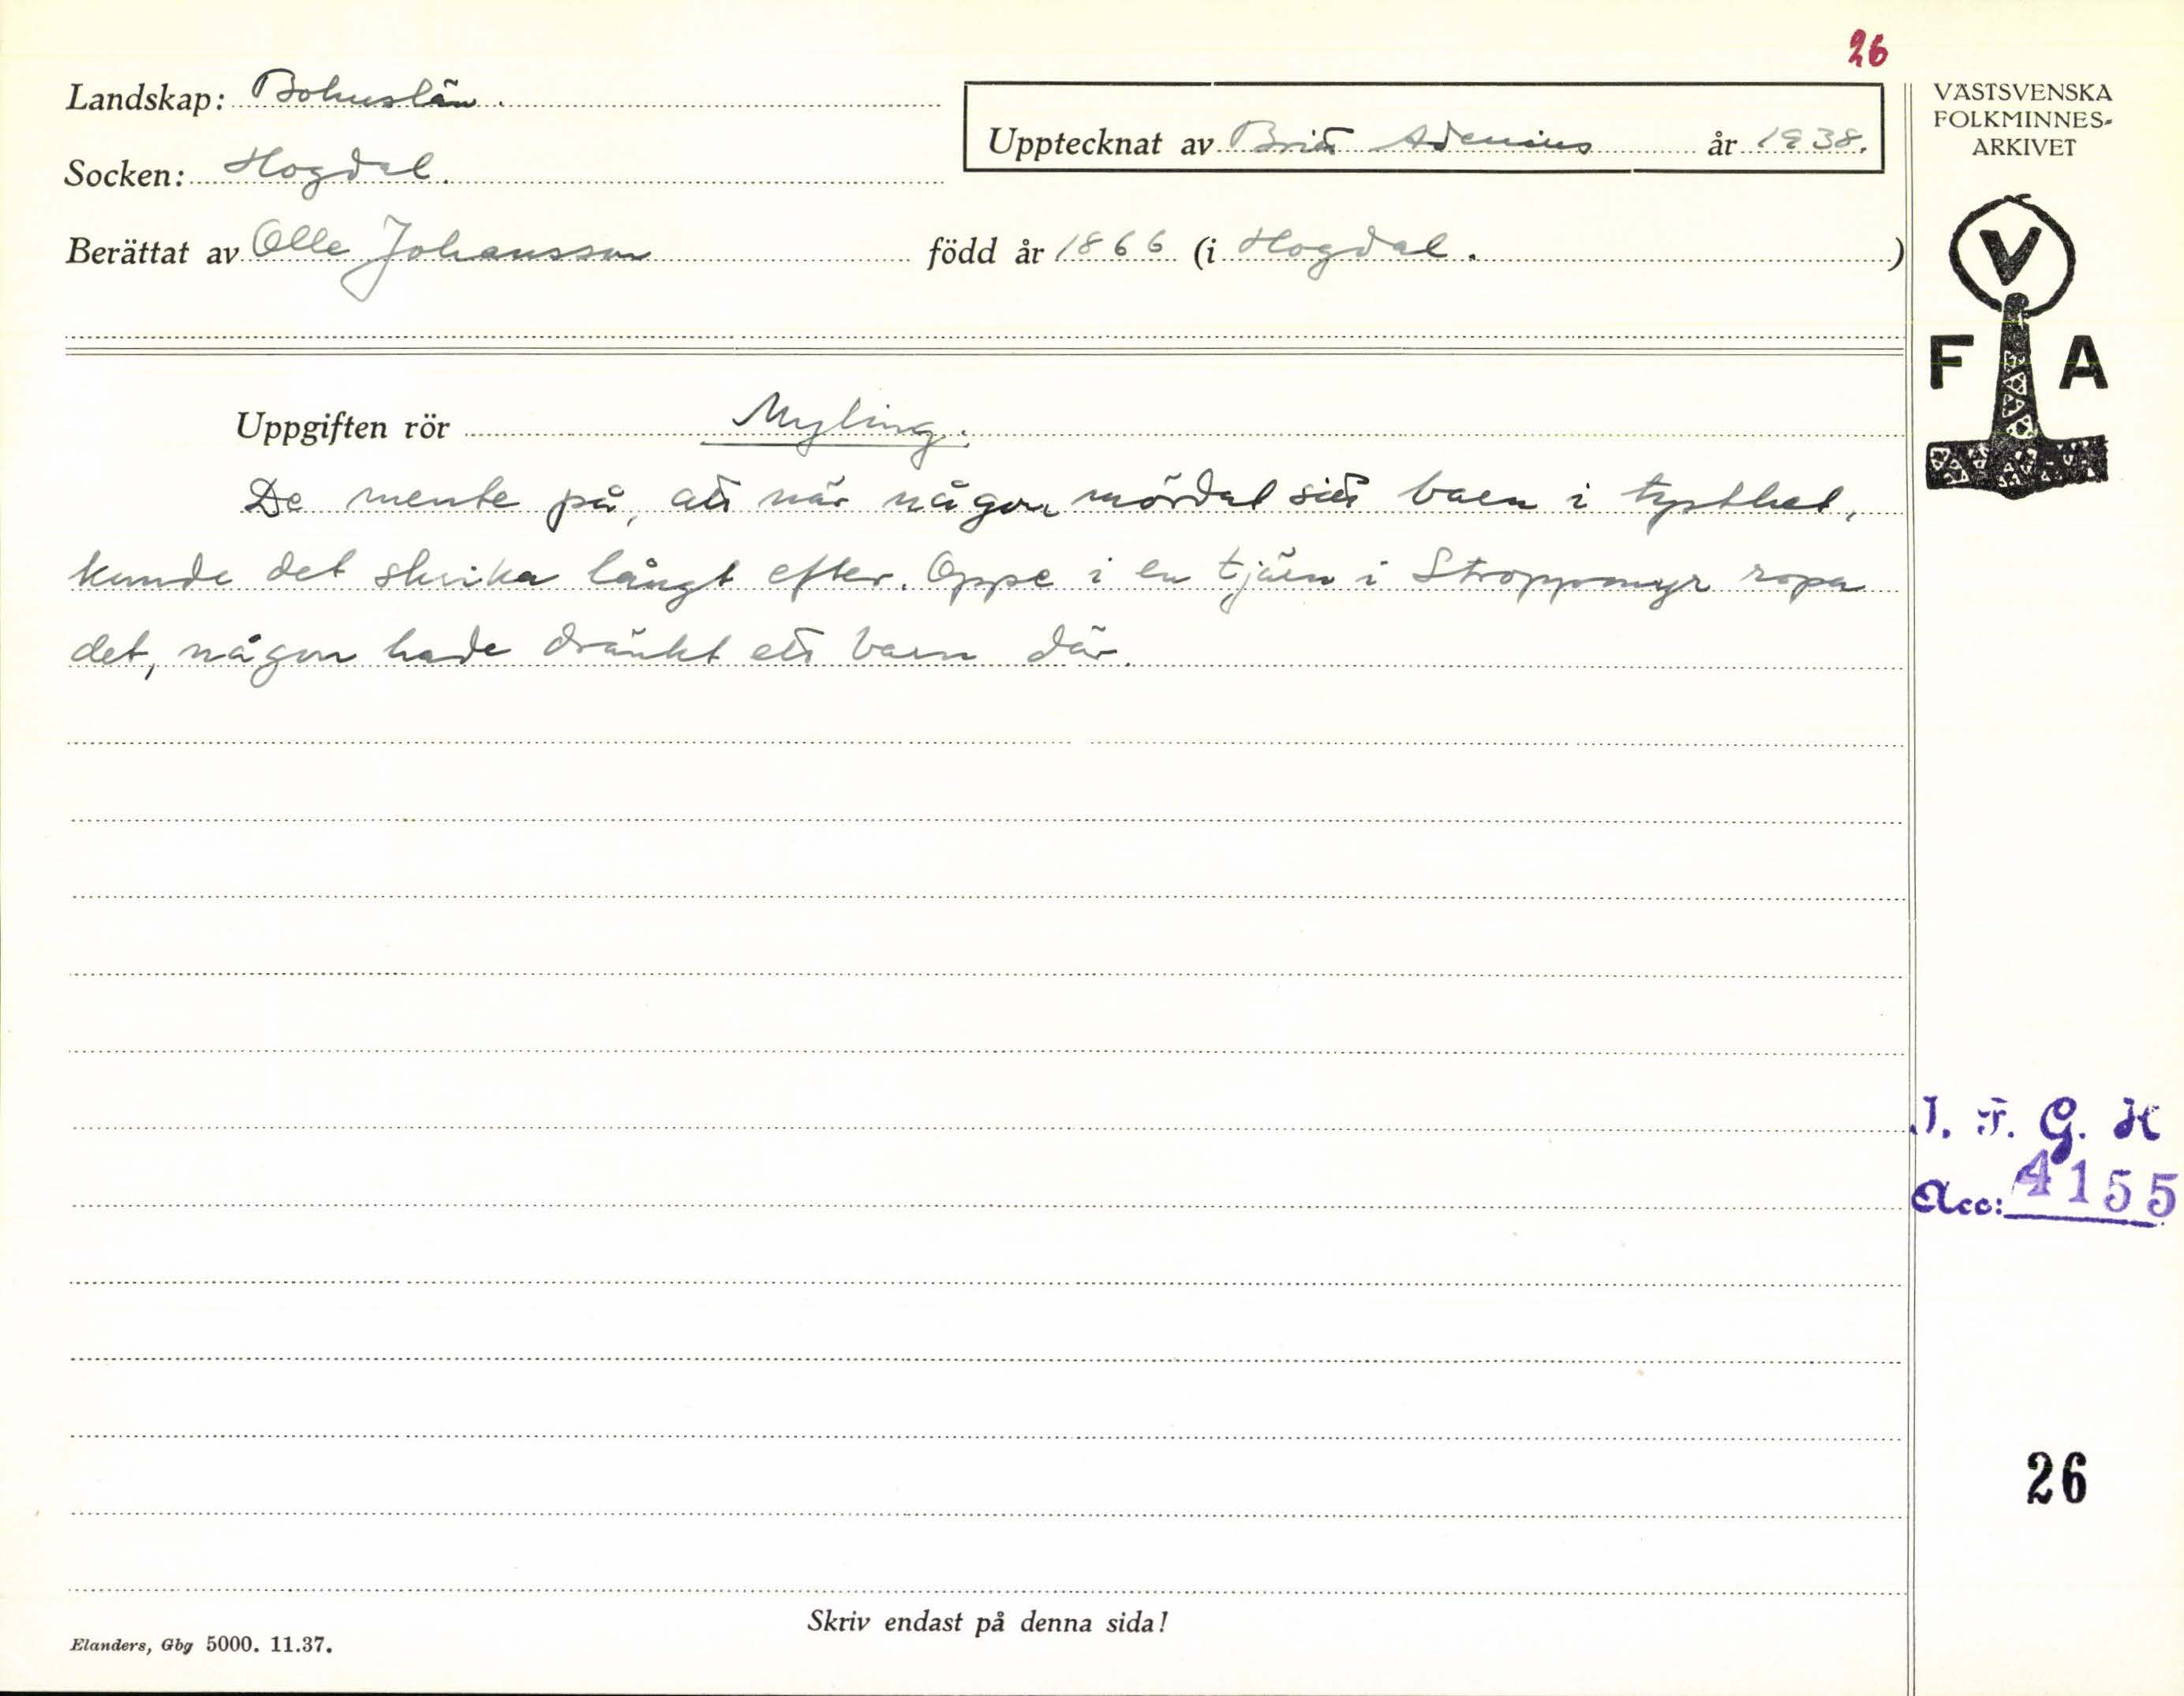 26
Landskap: Bohuslän.
Upptecknat av Britt Adenius år 1938.
Socken: Hogdal.
Berättat av Olle Johansson född år 1866 (i Hogdal.)
Uppgiften rör Myling.
De mente på, att när någon mördat sitt barn i tysthet,
kunde det skrika långt efter. Oppe i en tjärn i Stroppemyr ropa
det, någon hade dränkt ett barn där.
VÄSTSVENSKA
FOLKMINNES-
ARKIVET
V
F A
I. F. G. H
Acc: 4155
26
Skriv endast på denna sida!
Elanders, Gbg 5000. 11.37.